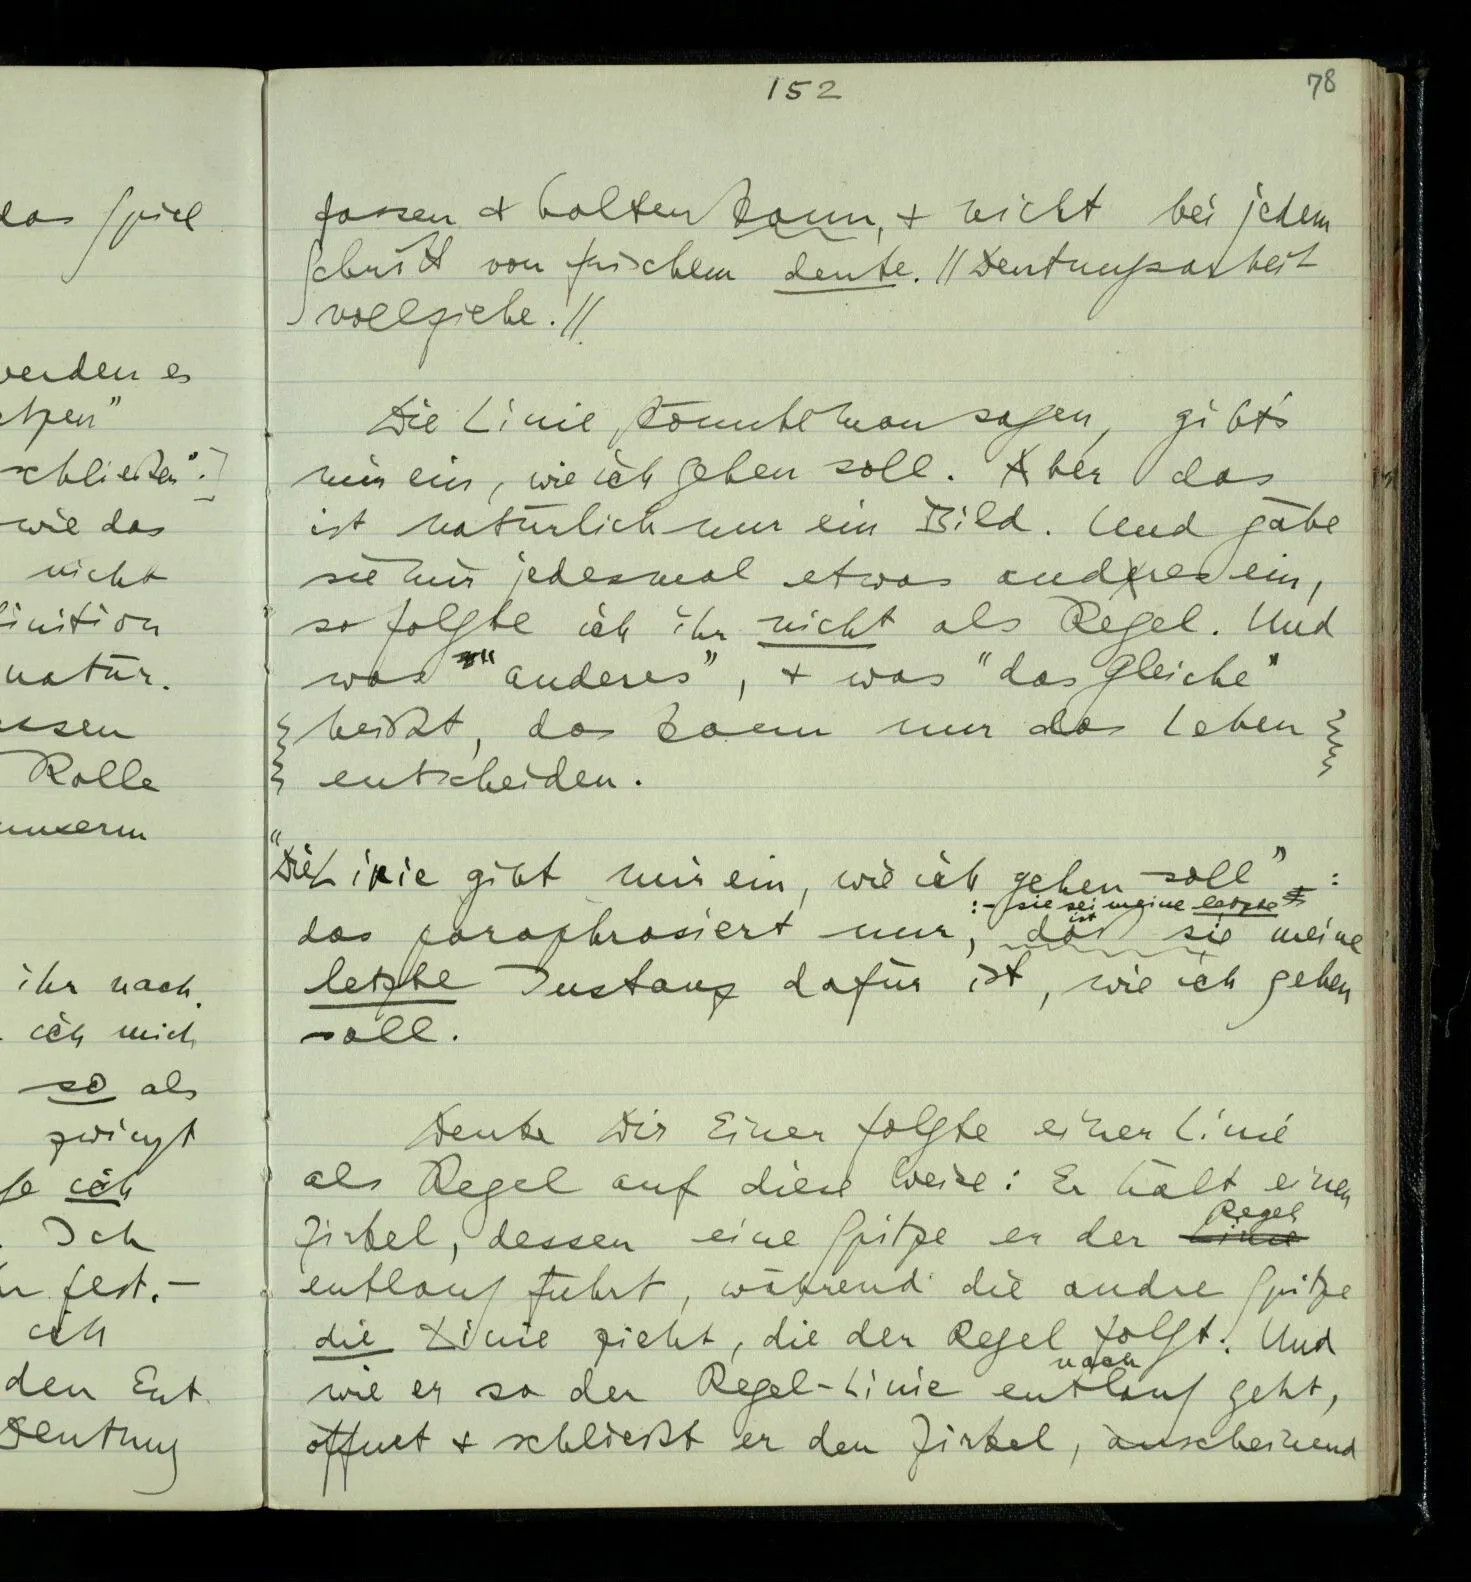 das Spiel
werden es
etzen"
schließen".]
wie das
nicht
inition
natür.
essen
Rolle
unserm
ihr nach.
ich mich
so als
zwingt
ich
Ich
fest. –
ich
den Ent
Deutung
152
78
fassen & halten kann, & nicht bei jedem
Schritt von frischem deute. // Deutungsarbeit
vollziehe. //
Die Linie, könnte man sagen, gibt's
mir ein, wie ich gehen soll. Aber das
ist natürlich nur ein Bild. Und gäbe
sie mir jedesmal etwas anderes ein,
so folgte ich ihr nicht als Regel. Und
was "anderes", & was "das gleiche"
heißt, das kann nur das Leben
entscheiden.
"Die Linie gibt mir ein, wie ich gehen soll":
:– sie sei meine letzte
das paraphrasiert nur, das ist sie meine
letzte Instanz dafür ist, wie ich gehen
soll.
Denke Dir Einer folgte einer Linie
als Regel auf diese Weise: Er hält einen
Zirkel, dessen eine Spitze er der Linie Regel
entlang führt, während die andre Spitze
die Linie zieht, die der Regel folgt. Und
nach
wie er so der Regel-Linie entlang geht,
öffnet & schließt er den Zirkel, anscheinend